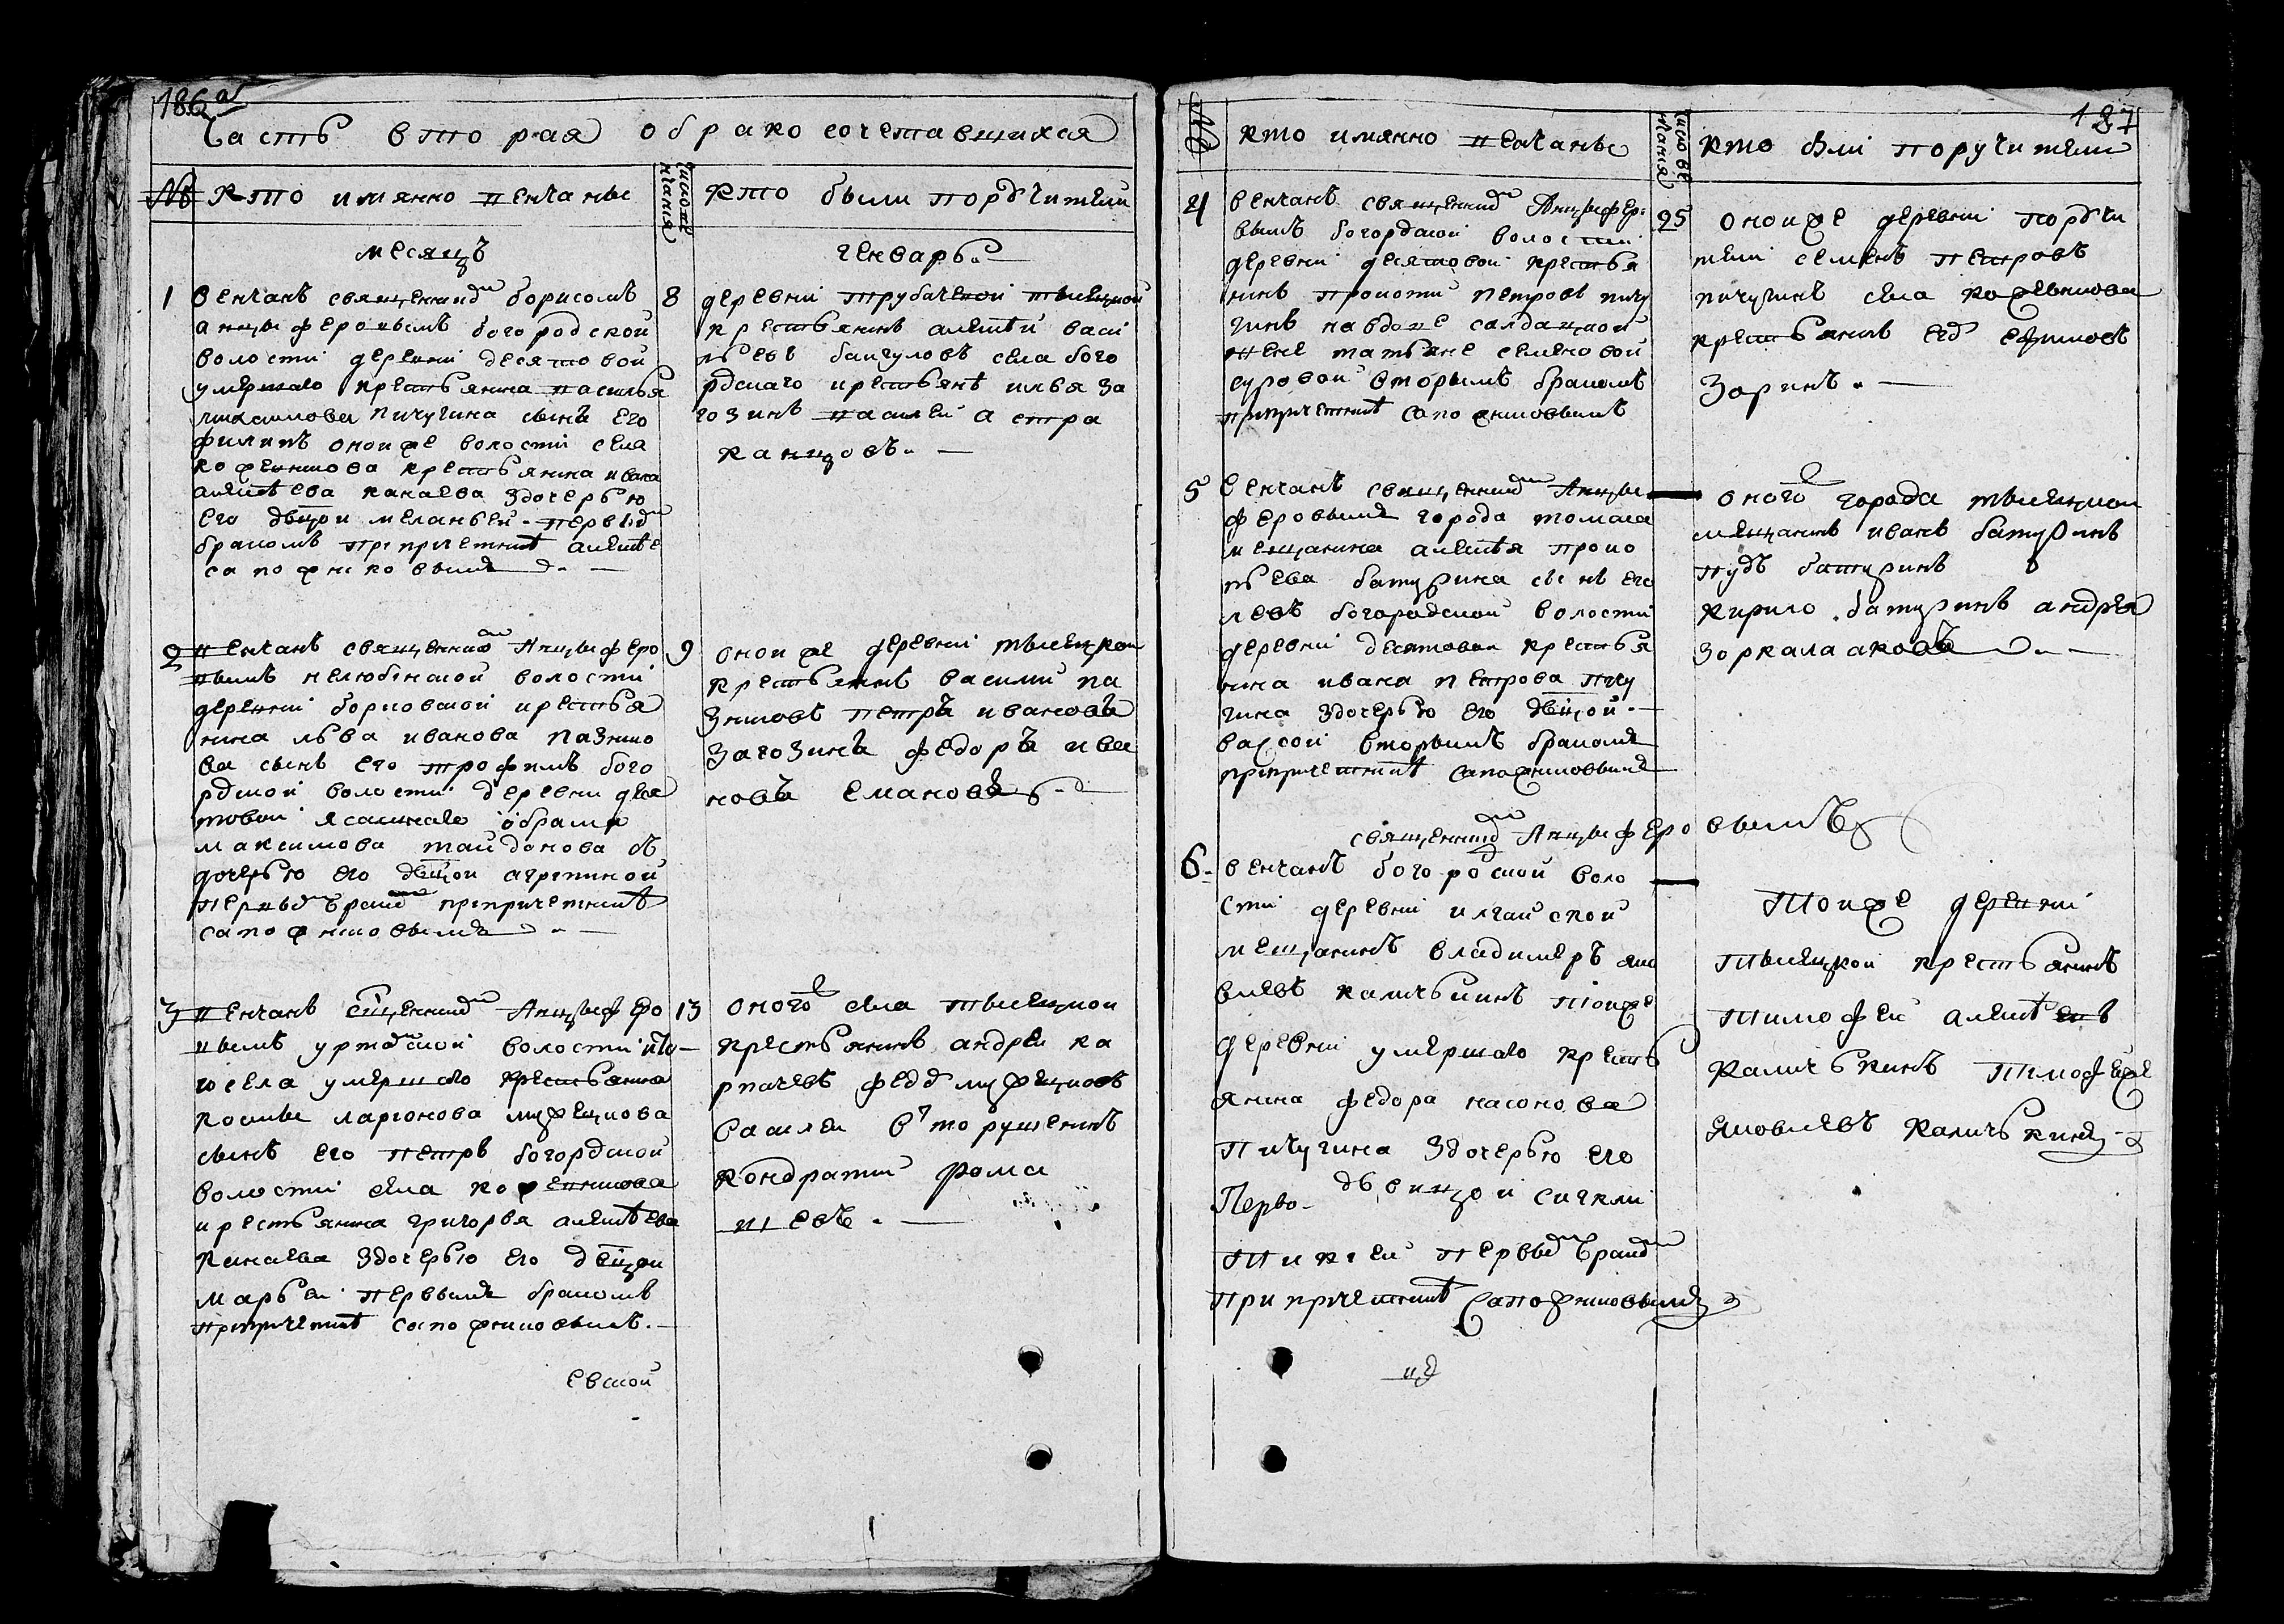 186 а
Часть вторая о бракосочетавшихся
№ кто имянно венчаны
число венчания
кто были поручители
месяцъ
генварь
1 венчанъ священникомъ борисомъ
анцыферовымъ богородской
волости деревни десятовой
умершаго крестьянина василья
максимова пичугина сынъ его
филипъ оной же волости села
кожевникова крестьянина ивана
алексѣева канаева здочерью
его двцои меланьей первымъ
бракомъ при причетникѣ алексѣе
сапожниковымъ
8
деревни трубачевой тылецкой
крестьянинъ алексѣй васи
льевъ баигуловъ села бого
родскаго крестьянѣ илья за
гозинъ василей астра
ханцовъ
2 венчанъ священникомъ Анцыферо
вымъ нелюбинской волости
деревни борковской крестья
нина льва иванова пазнико
ва сынъ его трофимъ бого
родской волости деревни деся
товой ясашнаго абрама
максимова таиданова съ
дочерью его двцои агрепиной
первымъ бракомъ при причетникѣ
сапожниковымъ
9
оной же деревни тылецкой
крестьянинъ василий па
зниковъ петръ ивановъ
загозинъ федоръ ива
новъ емановъ
3 венчанъ сщенникомъ Анцыферо
вымъ уртамской волости ито
го села умершаго крестьянина
космы ларионова мужецкова
сынъ его петръ богородской
волости села кожевникова
крестьянина григорья алексѣева
канаева здочерью его двцои
марьей первымъ бракомъ
при причетникѣ сапожниковымъ
13
оного села тылецкой
крестьянинъ андреи ка
рпачевъ федоръ мужецковъ
василеи вторушенинъ
кондратий фома
шевъ
евской
187
№ кто имянно венчаны
число венчания
кто были поручители
4 венчанъ священникомъ Анцыферо
вымъ богородской волости
деревни десятовой крестья
нинъ прокопий петровъ пичу
гинъ навдове салдацкой
жене татьяне семеновой
суровой вторымъ бракомъ
при причетникѣ сапожниковымъ
25
оной же деревни поручи
тели семенъ петровъ
пичугинъ села кожевникова
крестьянинъ егоръ ефимовъ
зоринъ
5 венчанъ священникомъ Анцы
феровымъ города томска
мещанина алексѣя проко
пьева батурина сынъ его
левъ богородской волости
деревни десятовой крестья
нина ивана петрова пичу
гина здочерью его двцой
вассой вторымъ бракомъ
при причетникѣ сапожниковымъ
оного города тылецкой
мещанинъ иванъ батуринъ
батуринъ
кирило батуринъ андрей
священникомъ Анцыферовымъ
6 венчанъ богородской воло
сти деревни илгайской
мещанинъ владимеръ яко
влевъ каличькинъ тоиже
деревни умершаго кресть
янина федора насонова
Пичугина здочерью его
Перво- двицой сигкли
тикіей первымъ бракомъ
при причетникѣ сапожниковымъ
Тоиже деревни
тылецкой крестьянинъ
тимофеи алексѣевъ
каличькинъ тимофеиже
яковлевъ каличькинъ